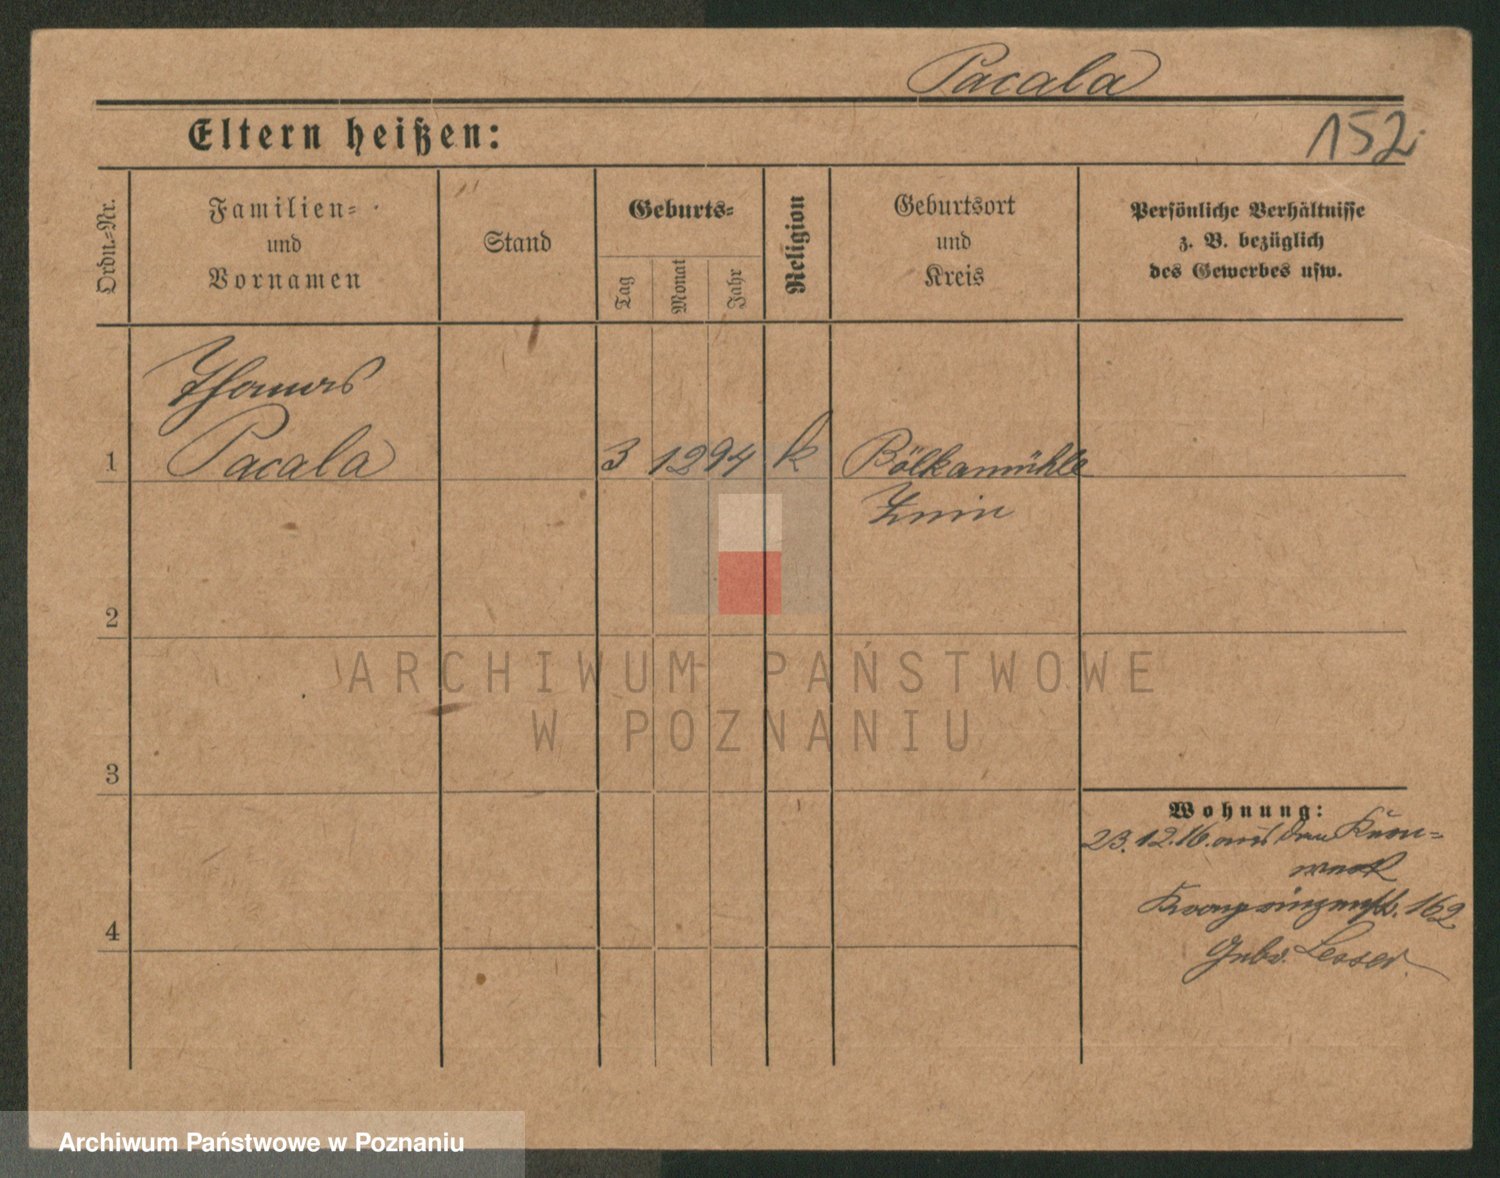 Pacala
152.
Eltern heißen:
Ordn.-Nr.
Familien-
und
Vornamen
Stand
Geburts-
Tag
Monat
Jahr
Religion
Geburtsort
und
Kreis
Persönliche Verhältnisse
z. B. bezüglich
des Gewerbes usw.
Thomas
1 Pacala 3 12 94 k Bölkamühle
Znin
2
3
4
Wohnung:
23.12.16. aus
Kronprinzenstr. 162
Lesser.
ARCHIWUM PAŃSTWOWE
W POZNANIU
Archiwum Państwowe w Poznaniu